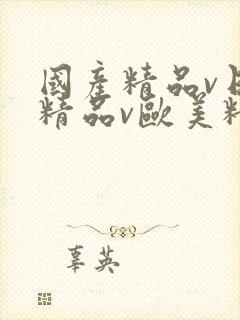 國產精品v日
精品v歐美精
辜英